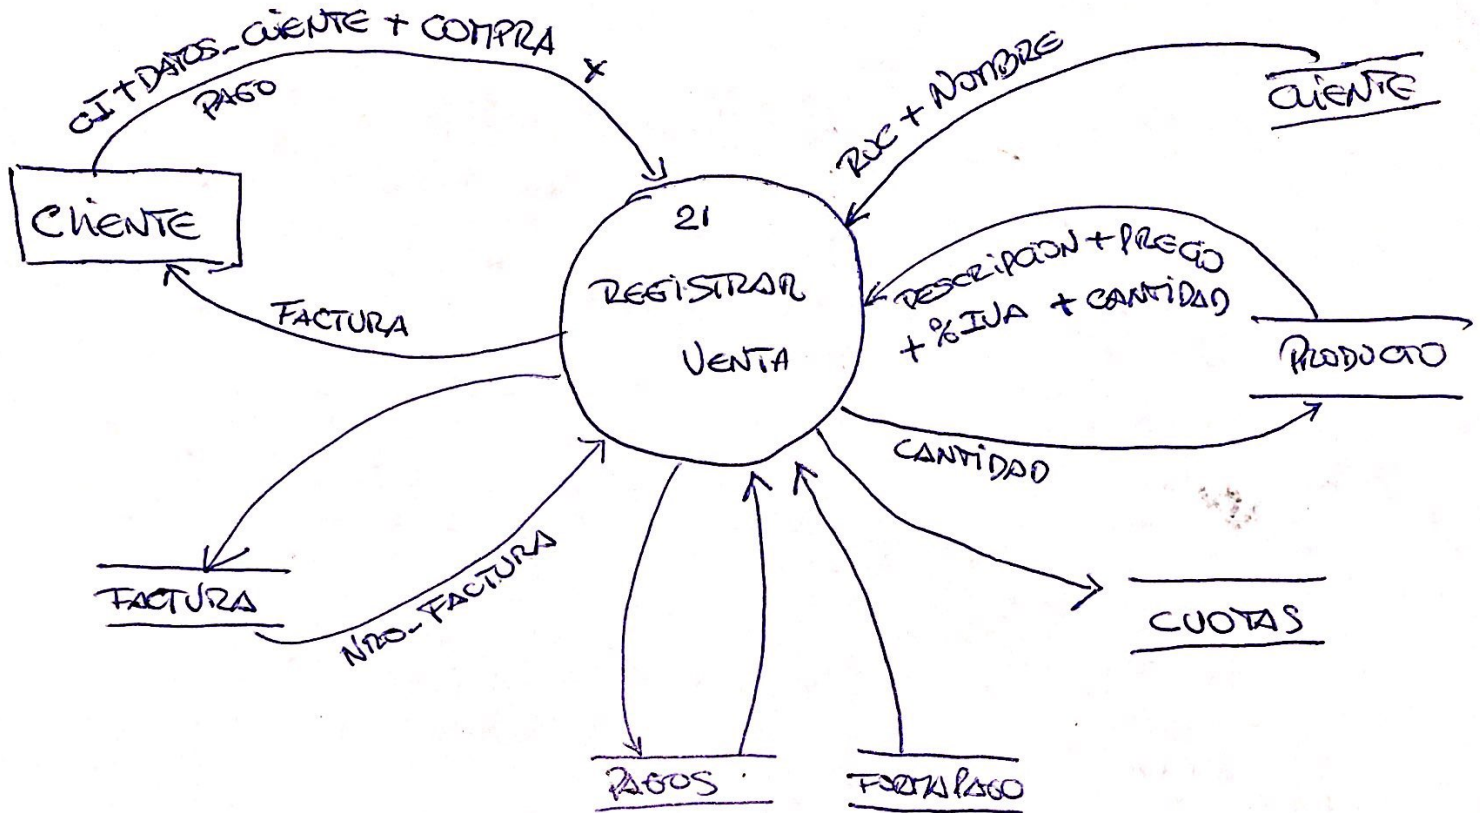 CI+DATOS_CLIENTE + COMPRA +
PAGO
RUC + NOMBRE
CLIENTE
CLIENTE
21
REGISTRAR
VENTA
DESCRIPCION + PRECIO
+ % IVA + CANTIDAD
PRODUCTO
FACTURA
CANTIDAD
FACTURA
NRO_FACTURA
CUOTAS
PAGOS
FORMAPAGO